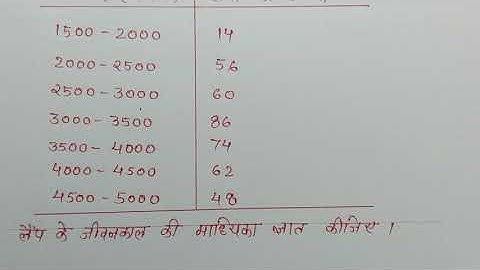 1500 - 2000 14
2000 - 2500 56
2500 - 3000 60
3000 - 3500 86
3500 - 4000 74
4000 - 4500 62
4500 - 5000 48
लैंप के जीवनकाल की माध्यिका ज्ञात कीजिए ।